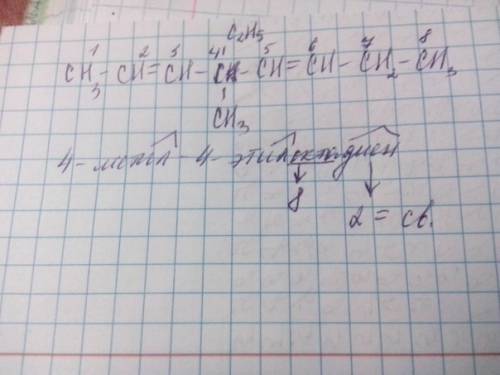 C₂H₅
1 2 3 4 5 6 7 8
CH₃-CH=CH-C-CH=CH-CH₂-CH₃
CH₃
4-метил-4-этилоктадиен
8
2 = св.